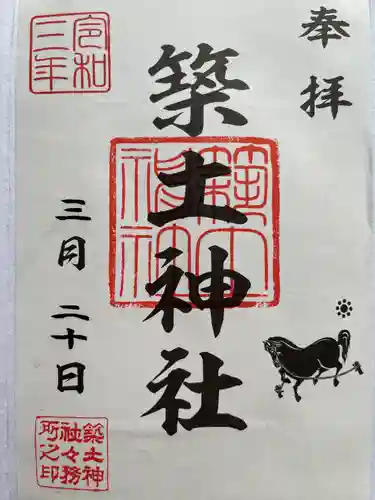 奉拝
築土神社
令和
三年
三月二十日
築土神
社々務
所之印